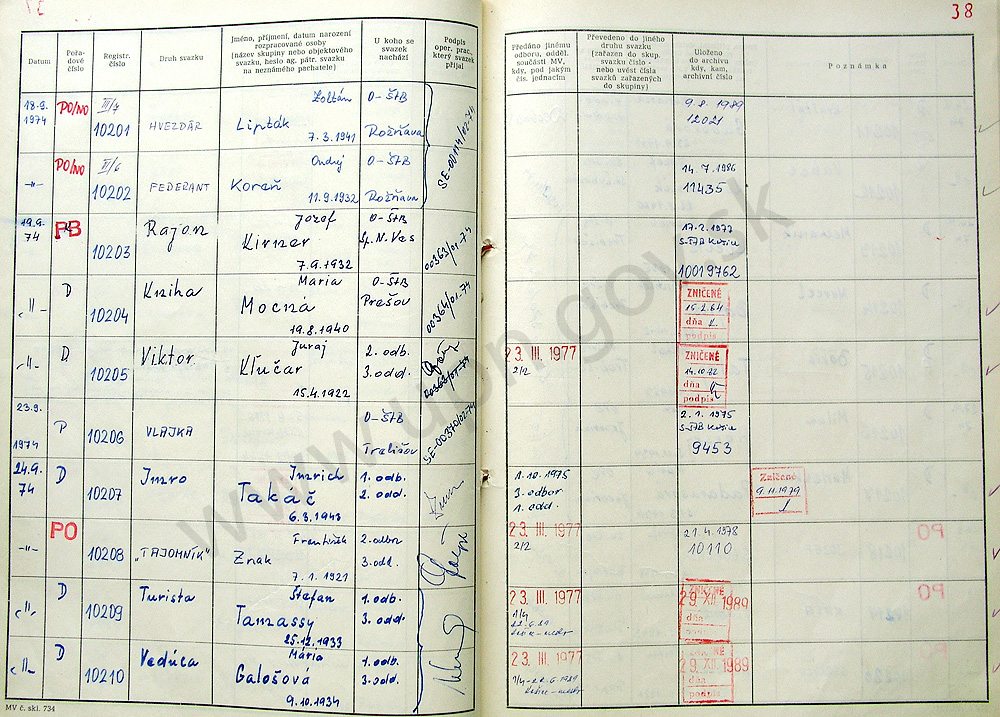 38
Datum
Pořadové číslo
Registr. číslo
Druh svazku
Jméno, příjmení, datum narození rozpracované osoby (název skupiny nebo objektového svazku, heslo ag. pátr. svazku na neznámého pachatele)
U koho se svazek nachází
Podpis oper. prac., který svazek přijal
Předáno jinému odboru, odděl. součásti MV, kdy, pod jakým čís. jednacím
Převedeno do jiného druhu svazku (zařazen do skup. svazku číslo - nebo uvést čísla svazků zařazených do skupiny)
Uloženo do archivu kdy, kam, archivní číslo
Poznámka
18.9. 1974 PO/NO III/7 10201 HVEZDÁR Zoltán Lipták 7.3.1941 O-ŠtB Rožňava
9.8.1989 12021
-"- PO/NO II/6 10202 FEDERANT Ondrej Koreň 11.9.1932 O-ŠtB Rožňava
14.7.1986 11435
19.9. 74 PB 10203 Rajon Jozef Kirner 7.9.1932 O-ŠtB Sp.N.Ves 00363/01-74
17.2.1977 S-ŠTB Košice 10019762
-"- D 10204 Kniha Maria Mocná 19.8.1940 O-ŠtB Prešov 00364/01-74
ZNIČENÉ dňa podpis
-"- D 10205 Viktor Juraj Kľučar 15.4.1922 2. odb. 3. odd.
23. III. 1977 2/2
ZNIČENÉ 14.10.82 dňa podpis
23.9. 1974 P 10206 VLAJKA O-ŠtB SE-00370/02-74
2.1.1975 S-ŠTB Košice 9453
24.9. 74 D 10207 Imro Imrich Takáč 6.3.1943 1. odb. 2. odd.
1.10.1975 3. odbor 1. odd.
Zničené 9.11.1979
-"- PO 10208 „TAJOMNÍK" František Znak 7.1.1921 2. odbor 3. odd.
23. III. 1977 2/2
21.4.1978 10110
-"- D 10209 Turista Štefan Tamassy 25.12.1933 1. odb. 3. odd.
23. III. 1977 1/4
ZNIČENÉ 29. XII. 1989 dňa podpis
-"- D 10210 Vedúca Mária Galošová 9.10.1934 1. odb. 3. odd.
23. III. 1977
ZNIČENÉ 29. XII. 1989 dňa podpis
MV č. skl. 734
www.upn.gov.sk